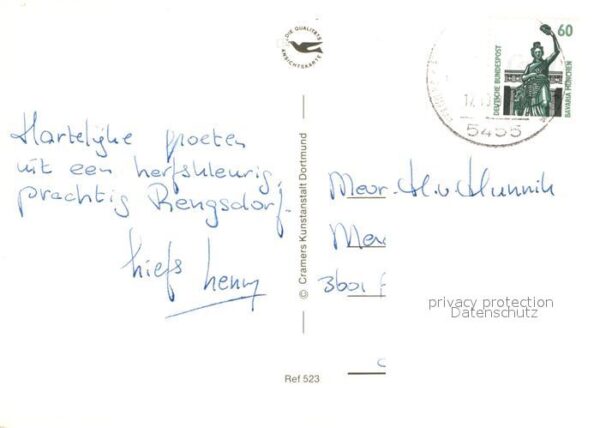 DIE QUALITÄTS
ANSICHTSKARTE
60
DEUTSCHE BUNDESPOST
BAVARIA MÜNCHEN
5455
Hartelijke groeten
uit een herfskleurig,
prachtig Rengsdorf.
liefs Henny
© Cramers Kunstanstalt Dortmund
Mevr. H. v. Hunnik
3601
privacy protection
Datenschutz
Ref 523